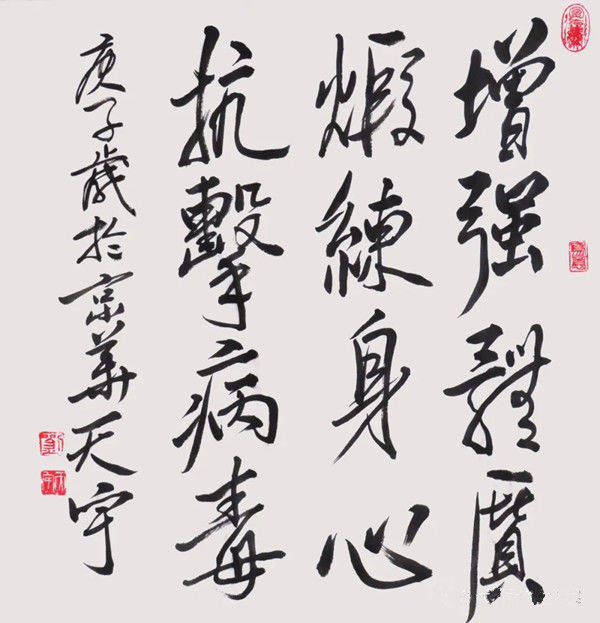 增强體質
煅練身心
抗擊病毒
庚子歲於京華天宇